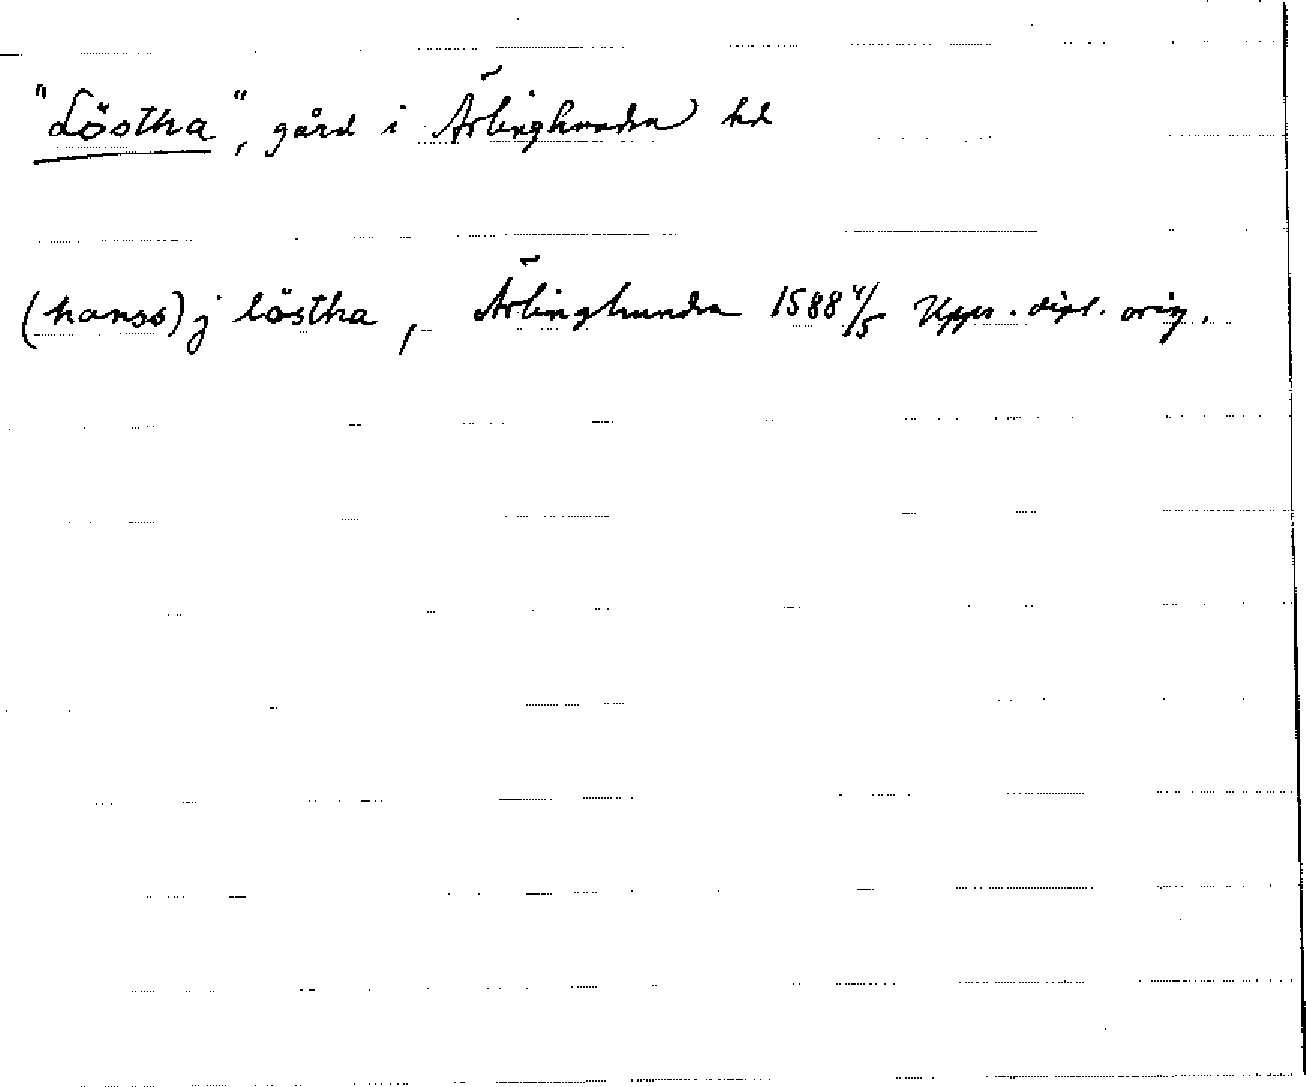 "Löstha", gård i Ärlinghundra hd
(hanss) j löstha, Ärlinghundra 1588 4/5 Upps. dipl. orig.